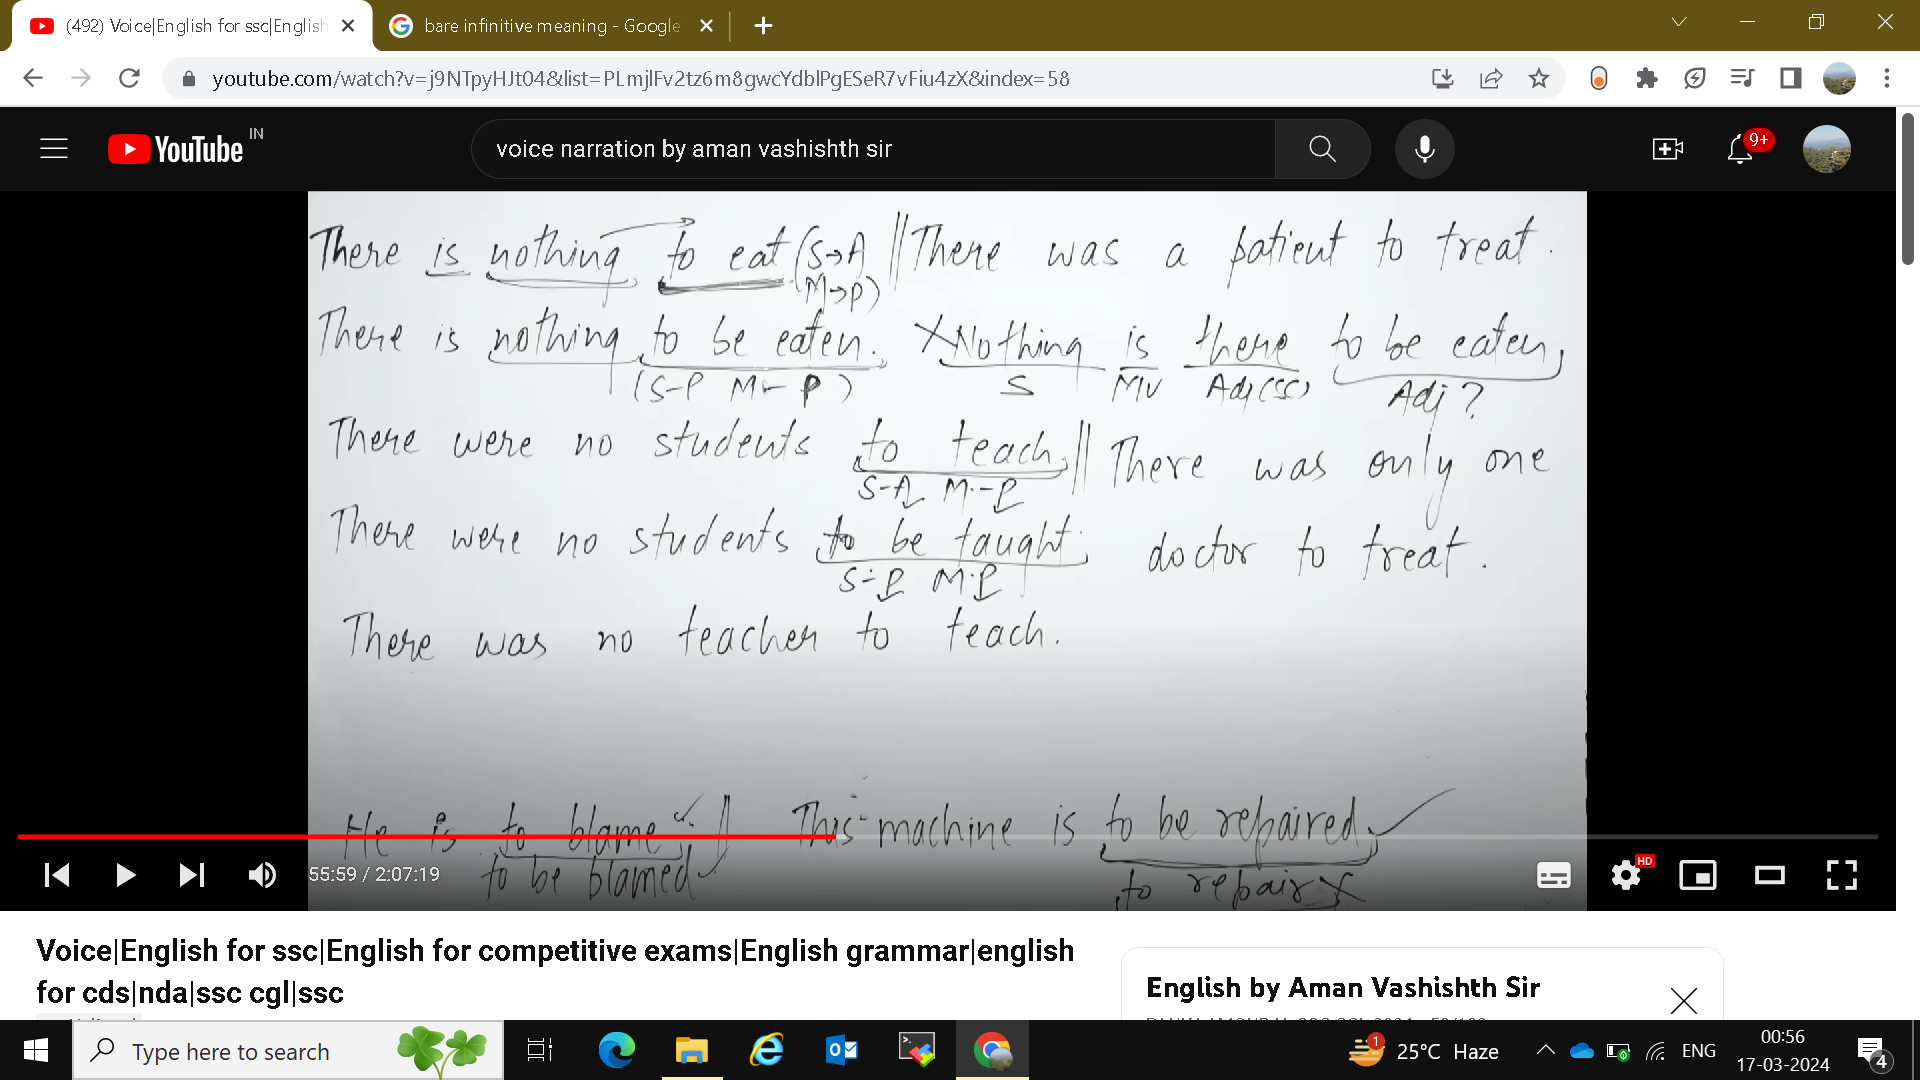 (492) Voice|English for ssc|English
bare infinitive meaning - Google
youtube.com/watch?v=j9NTpyHJt04&list=PLmjlFv2tz6m8gwcYdblPgESeR7vFiu4zX&index=58
YouTube IN
voice narration by aman vashishth sir
9+
There is nothing to eat (S→A || There was a patient to treat.
M→P)
There is nothing to be eaten. X Nothing is there to be eaten,
(S-P M-P) S MV Adj(SC) Adj?
There were no students to teach, || There was only one
S-A M.-P
There were no students to be taught; doctor to treat.
S-P M.P
There was no teacher to teach.
He is to blame ✓. || This machine is to be repaired, ✓
to be blamed ✓ to repair X
55:59 / 2:07:19
HD
Voice|English for ssc|English for competitive exams|English grammar|english
for cds|nda|ssc cgl|ssc
English by Aman Vashishth Sir
Type here to search
1
25°C Haze
ENG
00:56
17-03-2024
4